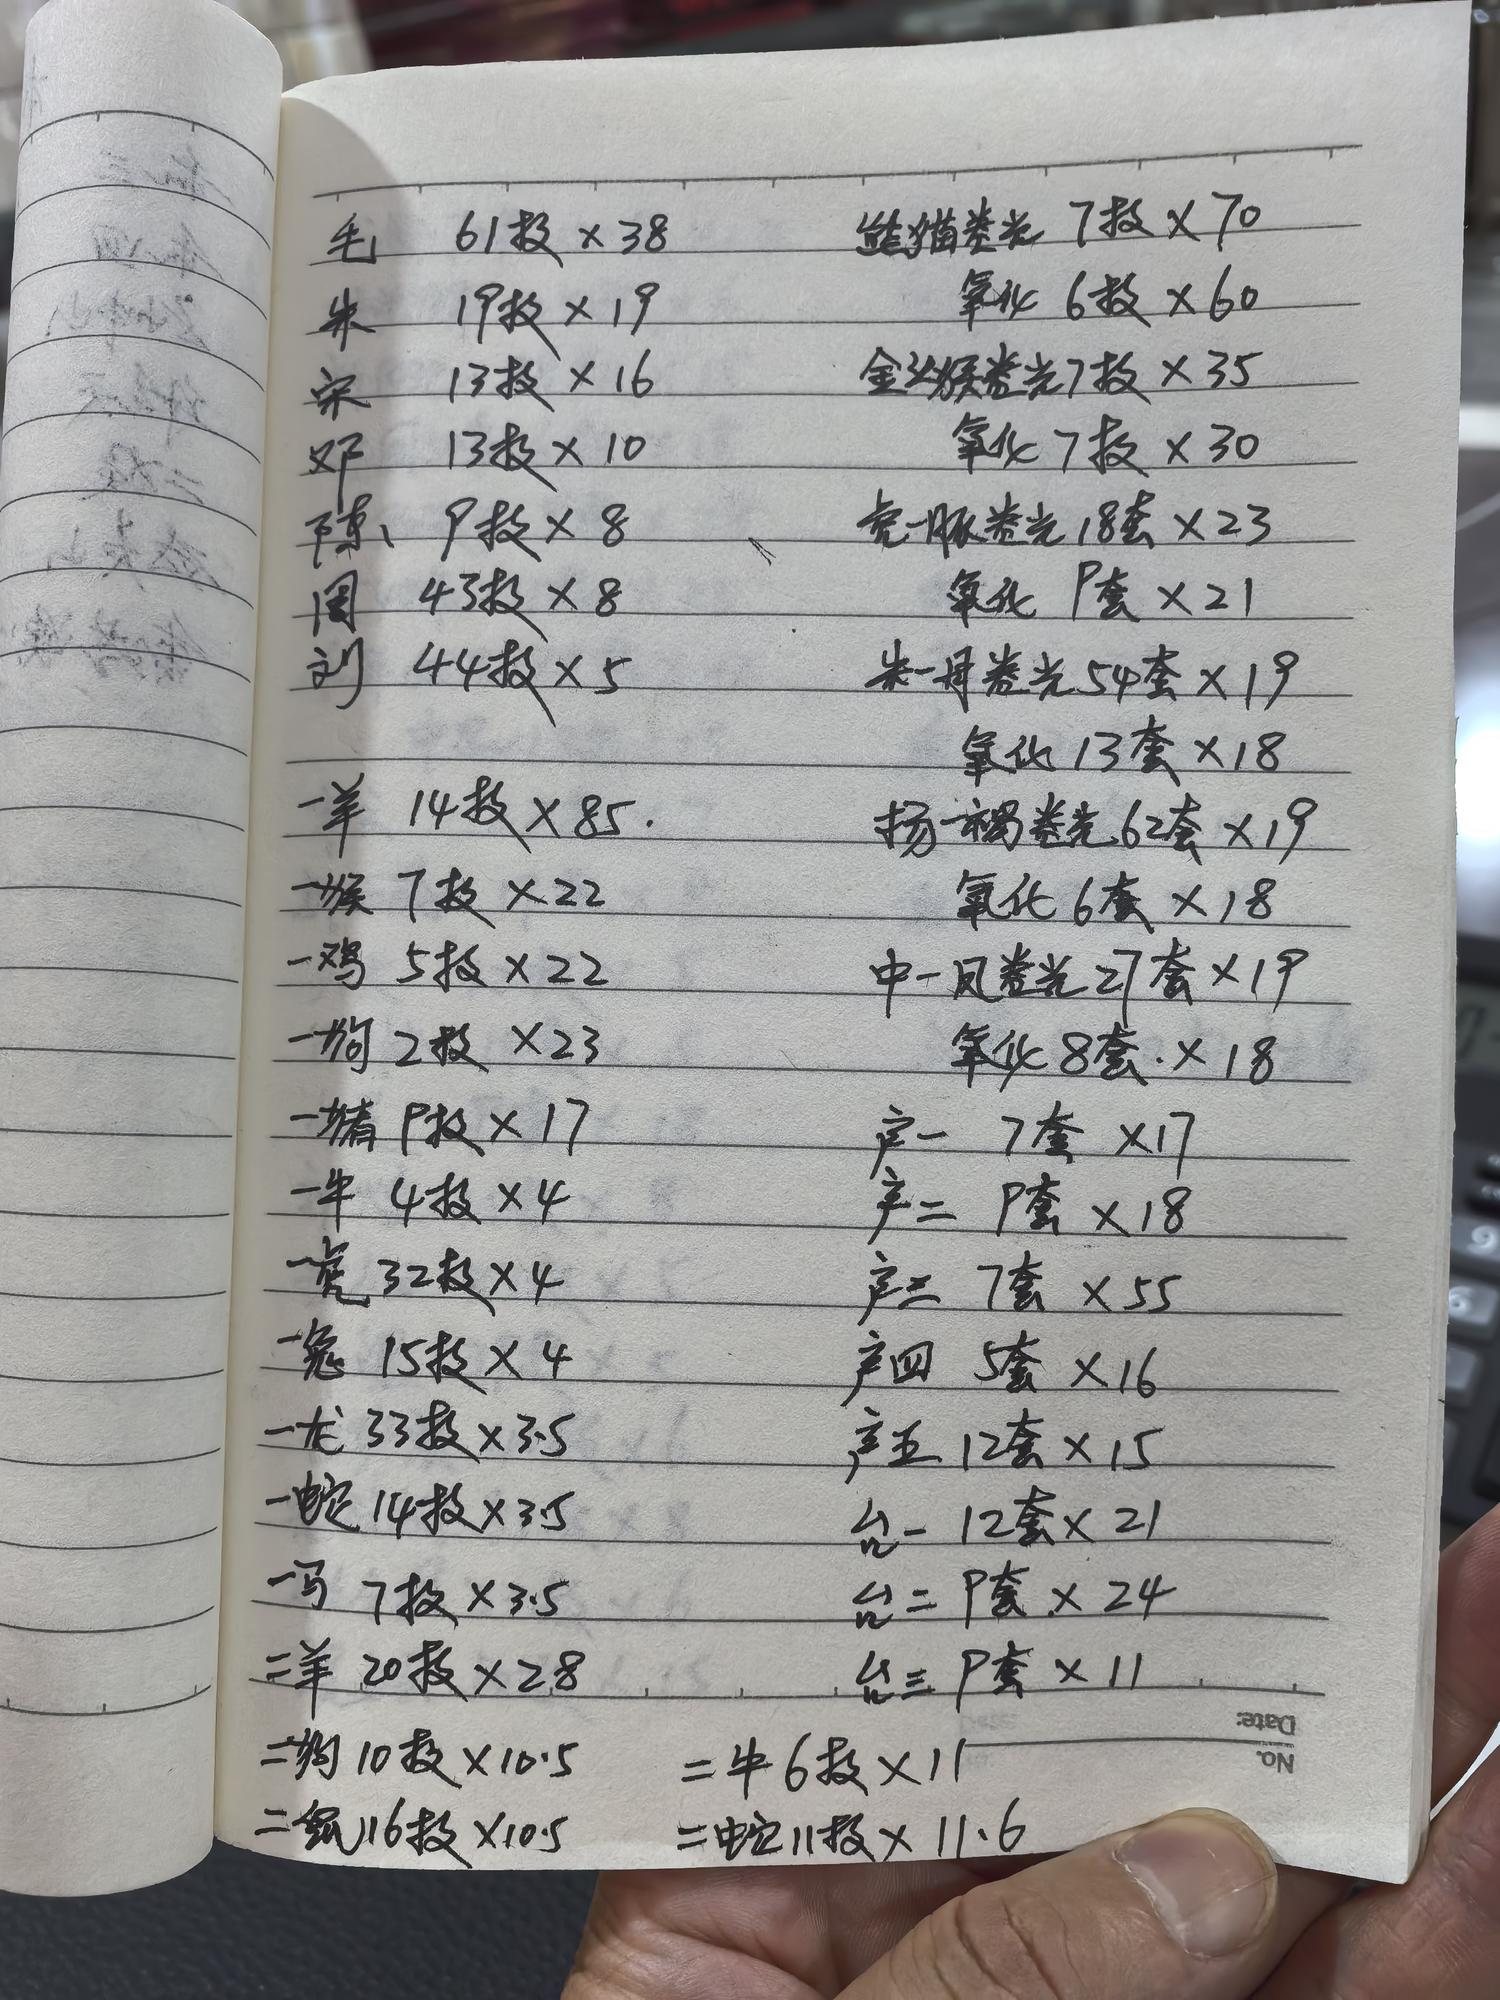 毛 61枚×38
朱 19枚×19
宋 13枚×16
邓 13枚×10
陈 9枚×8
周 43枚×8
刘 44枚×5
一羊 14枚×85.
一猴 7枚×22
一鸡 5枚×22
一狗 2枚×23
一猪 9枚×17
一牛 4枚×4
一虎 32枚×4
一兔 15枚×4
一龙 33枚×3.5
一蛇 14枚×3.5
一马 7枚×3.5
二羊 20枚×28
二狗 10枚×10.5
二鼠 16枚×10.5
熊猫卷光 7枚×70
氧化 6枚×60
金丝猴卷光 7枚×35
氧化 7枚×30
宪一豚卷光 18套×23
氧化 9套×21
朱一丹卷光 54套×19
氧化 13套×18
扬一褐卷光 62套×19
氧化 6套×18
中一凤卷光 27套×19
氧化 8套.×18
产一 7套×17
产二 9套×18
产三 7套×55
产四 5套×16
产五 12套×15
台一 12套×21
台二 9套×24
台三 9套×11
Date:
No.
二牛 6枚×11
二蛇 11枚×11.6